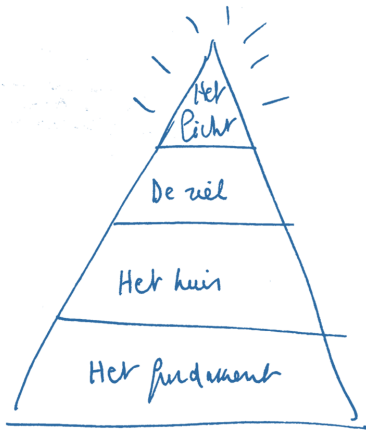 Het
licht
De ziel
Het huis
Het fundament